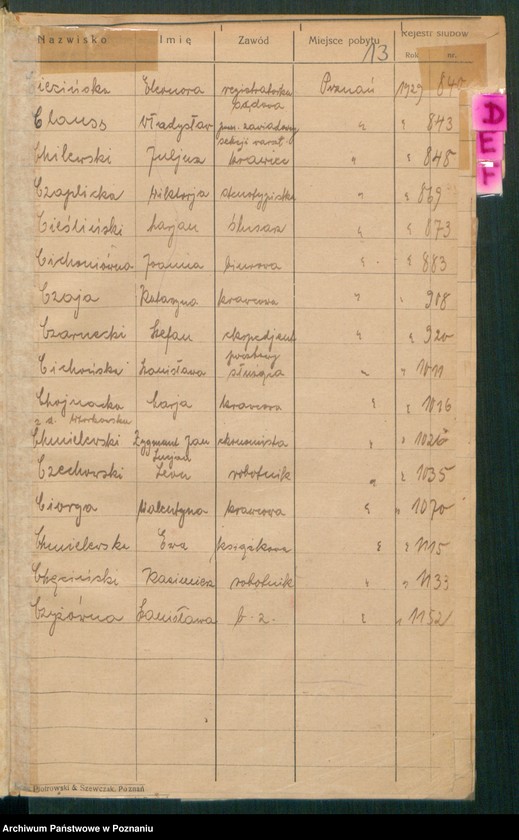 Nazwisko Imię Zawód Miejsce pobytu Rejestr ślubów
Rok nr.
13
Eleonora registratorka Poznań 1929 840
sądowa
Clauss Władysław 843
sekcji warszt.
Chilewski Juljusz krawiec " " 848
Czaplicka Wiktorja stenotypistka " " 869
Cieśliński Marjan ślusarz " " 873
Cichoniówna Joanna biurowa " " 883
Czaja Katarzyna krawcowa " " 908
Czarnecki Stefan ekspedjent " " 920
pocztowy
Cichońska Stanisława służąca " " 1011
Chojnacka Marja krawcowa " " 1016
z d.
Chmielewski Zygmunt Jan ekonomista " " 1026
Lucjan
Czechowski Leon robotnik " " 1035
Ciorga Walentyna krawcowa " " 1070
Chmielewska Ewa książkowa " " 1115
Chęciński Kazimierz robotnik " " 1133
Czyżówna Stanisława b. z. " " 1152
D
E
F
Piotrowski & Szewczak, Poznań
Archiwum Państwowe w Poznaniu